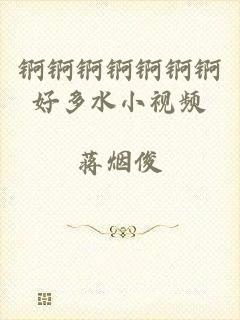 锕锕锕锕锕锕锕
好多水小视频
蒋烟俊